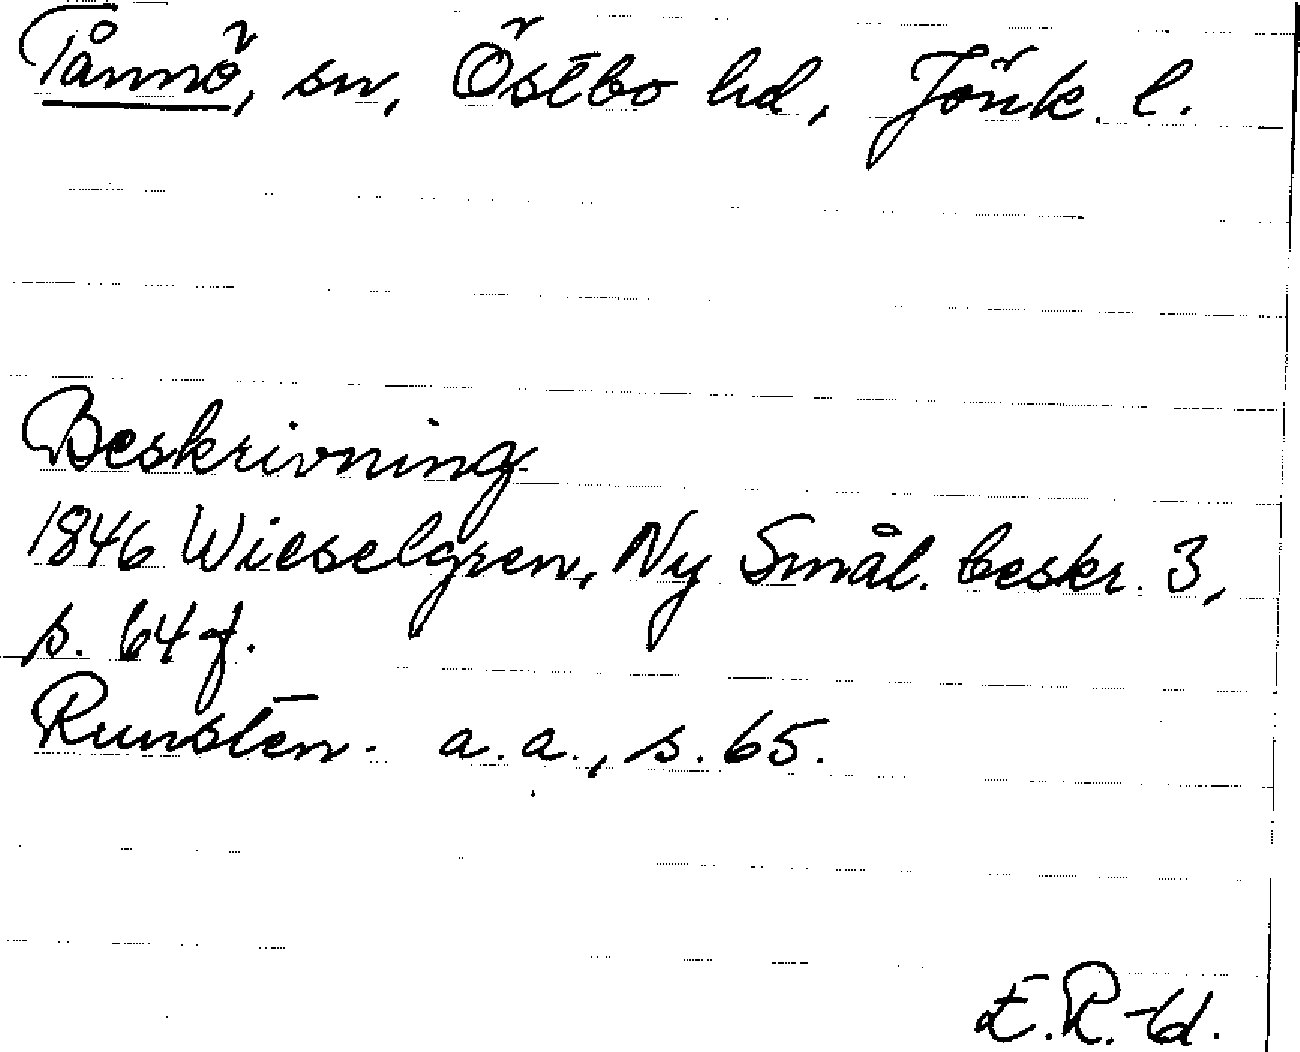 Tånnö, sn, Östbo hd, Jönk. l.
Beskrivning
1846 Wieselgren, Ny Smål. beskr. 3,
s. 64 f.
Runsten. a.a., s. 65.
E.R.-td.